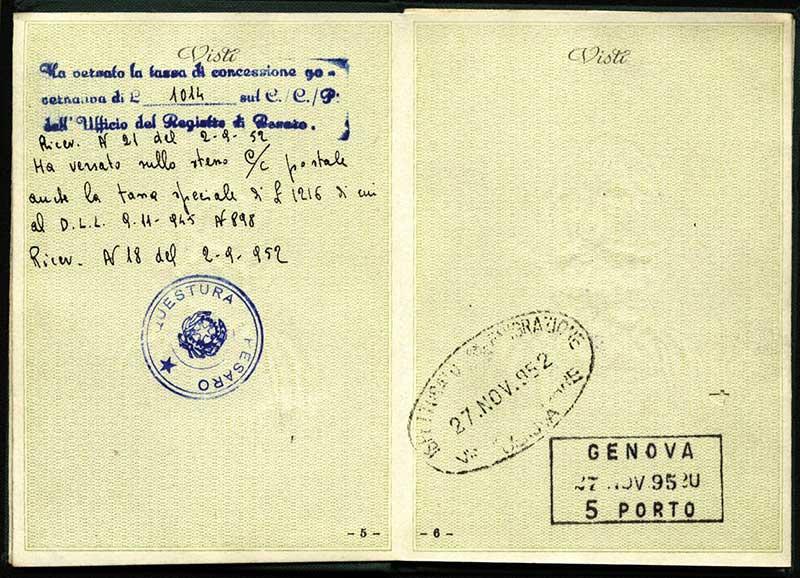 Visti
Ha versato la tassa di concessione go-
vernativa di £ 1014 sul C./C./P.
dell' Ufficio del Registro di Pesaro.
Ricev. N 21 del 2-9-52
Ha versato sullo stesso C/C postale
anche la tassa speciale di £ 1216 di cui
al D.L.L. 9-11-945 N 898
Ricev. N 18 del 2-9-952
QUESTURA
PESARO
- 5 -
Visti
27.NOV.952
GENOVA
27 NOV 952
5 PORTO
- 6 -